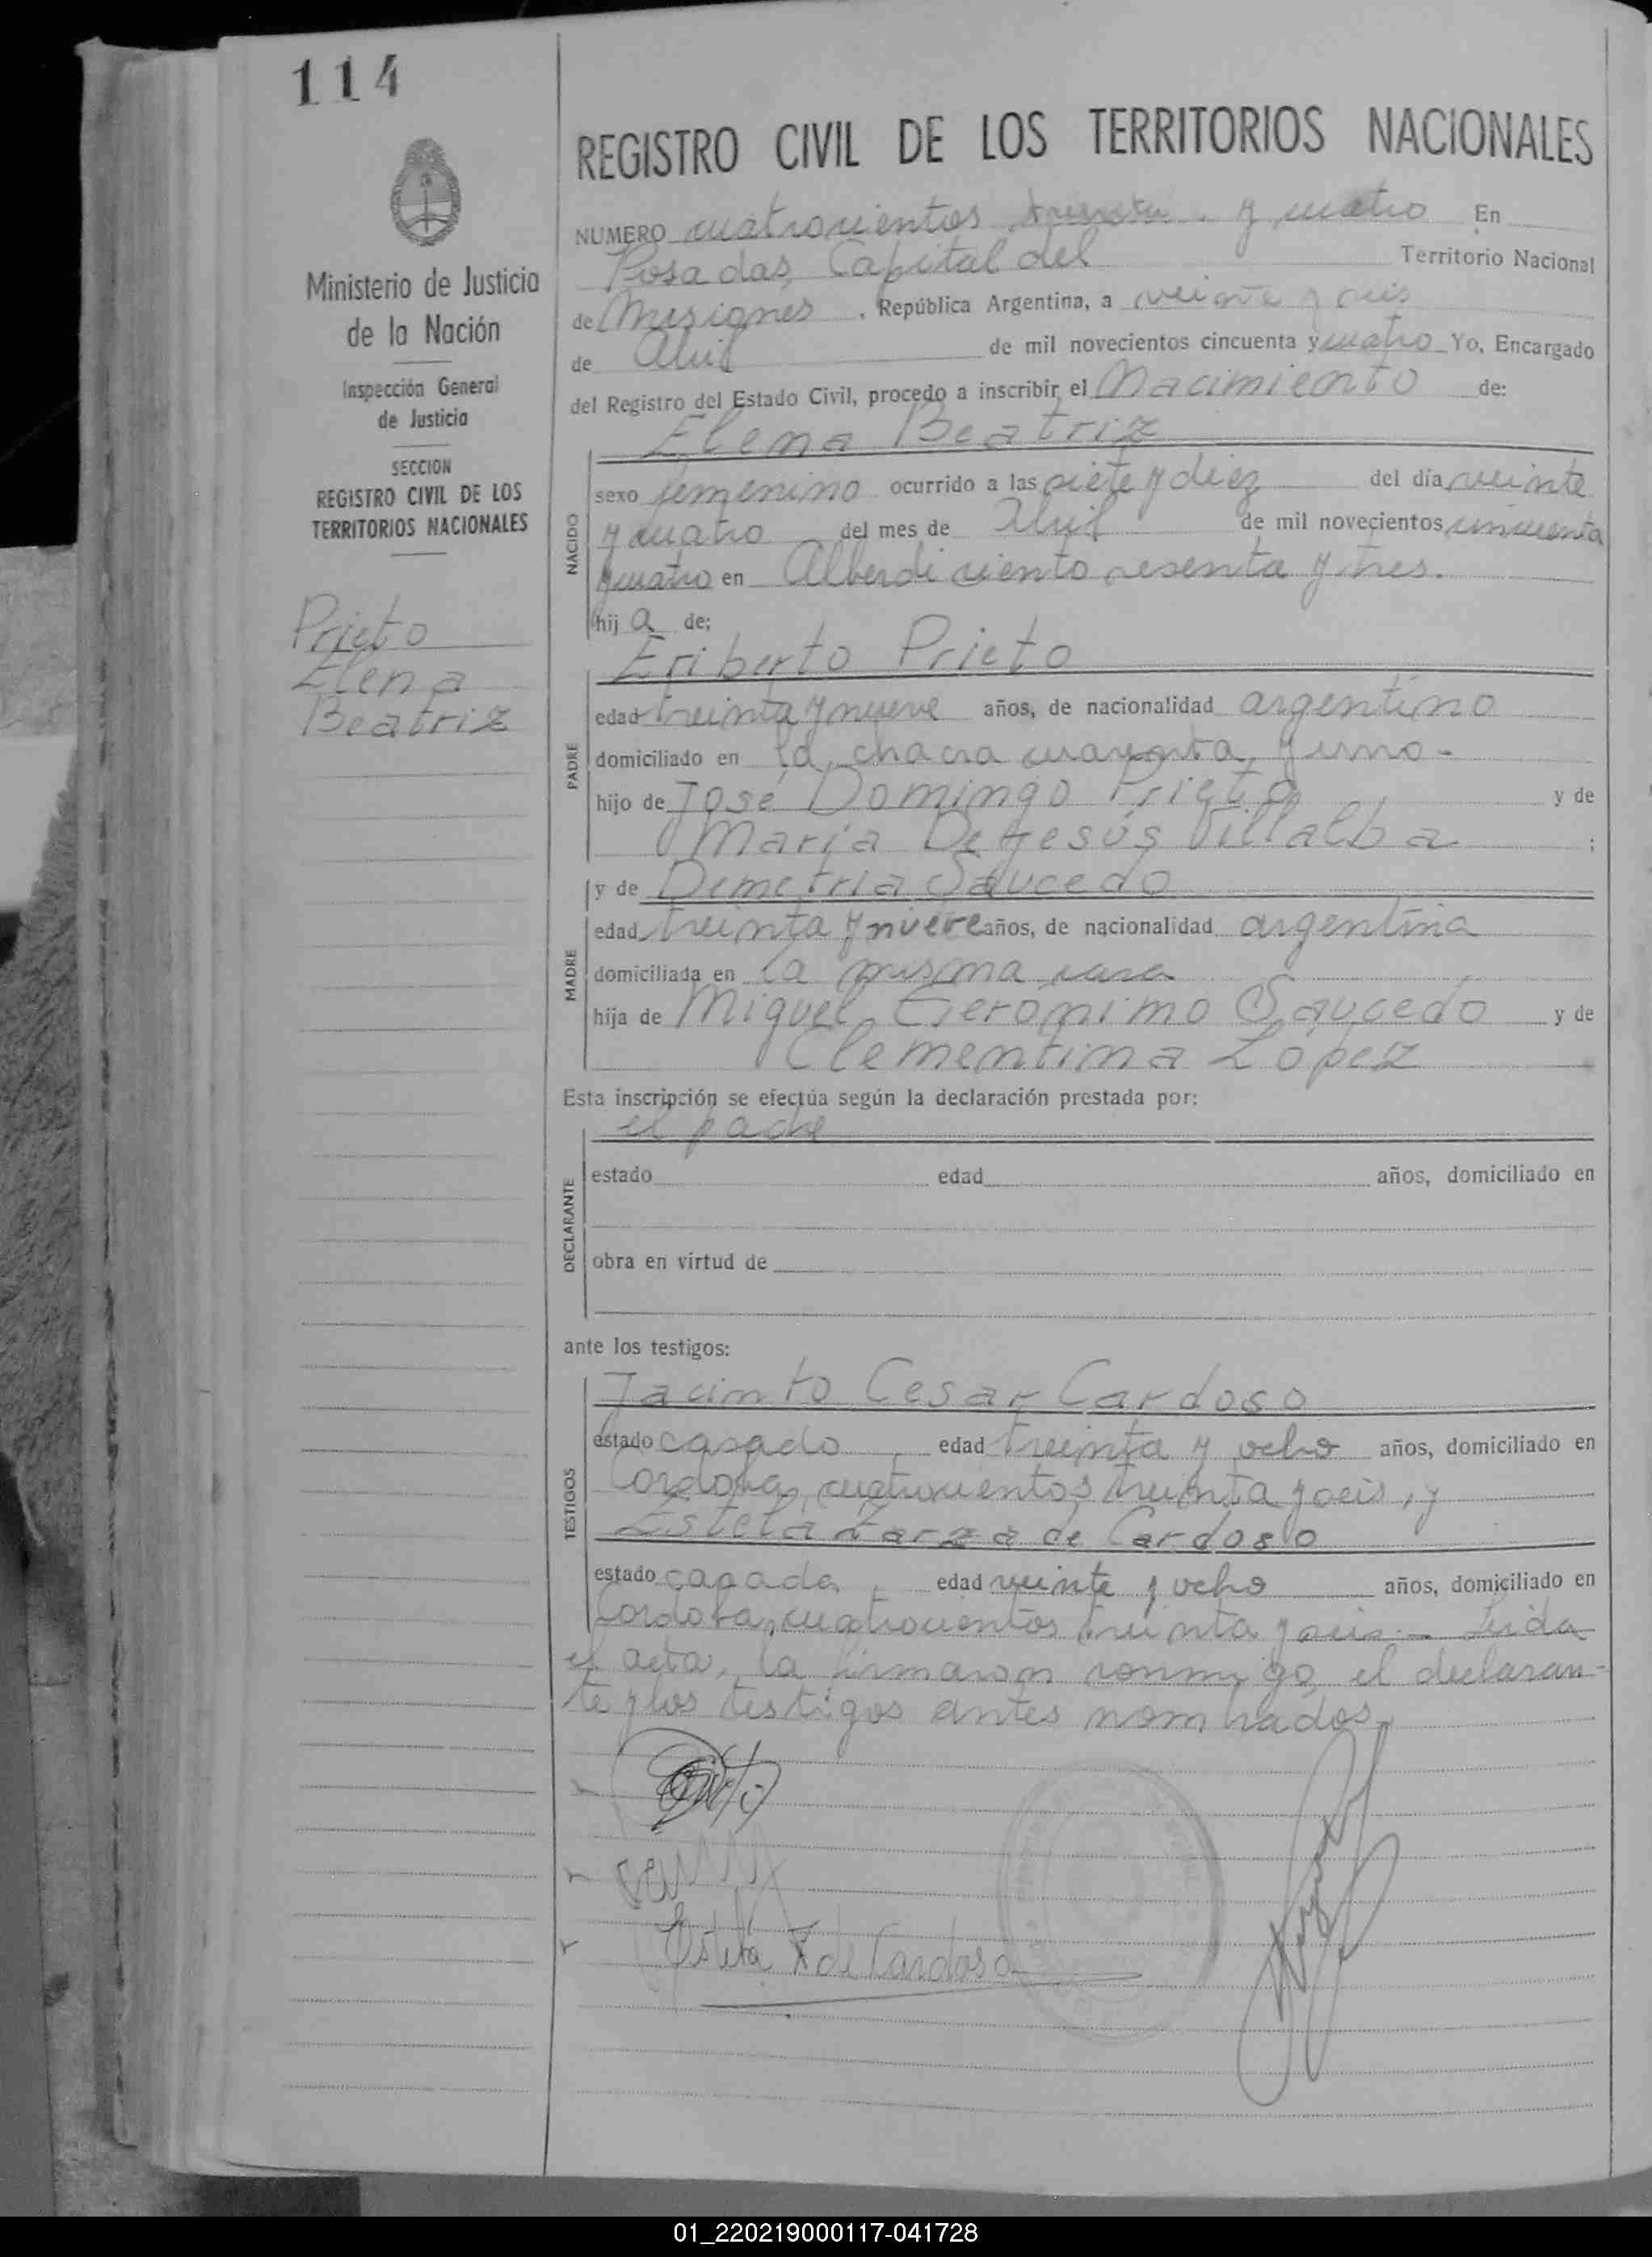 114
REGISTRO CIVIL DE LOS TERRITORIOS NACIONALES
Ministerio de Justicia
de la Nación
Inspección General
de Justicia
SECCION
REGISTRO CIVIL DE LOS
TERRITORIOS NACIONALES
Prieto
Elena
Beatriz
NUMERO cuatrocientos treinta y cuatro En
Posadas, Capital del Territorio Nacional
de Misiones, República Argentina, a veinte y seis
de Abril de mil novecientos cincuenta y cuatro Yo, Encargado
del Registro del Estado Civil, procedo a inscribir el Nacimiento de:
Elena Beatriz
NACIDO
sexo femenino ocurrido a las siete y diez del día veinte
y cuatro del mes de Abril de mil novecientos cincuenta
y cuatro en Alberdi ciento sesenta y tres.
hij a de:
Eriberto Prieto
PADRE
edad treinta y nueve años, de nacionalidad argentino
domiciliado en la chacra cuarenta y uno-
hijo de José Domingo Prieto y de
María De Jesús Villalba ;
y de Demetria Saucedo
MADRE
edad treinta y nueve años, de nacionalidad argentina
domiciliada en la misma casa
hija de Miguel Gerónimo Saucedo y de
Clementina López
Esta inscripción se efectúa según la declaración prestada por:
el padre
DECLARANTE
estado edad años, domiciliado en
obra en virtud de
ante los testigos:
Jacinto Cesar Cardoso
TESTIGOS
estado casado, edad treinta y ocho años, domiciliado en
Cordoba, cuatrocientos treinta y seis, y
Estela Zarza de Cardoso
estado casada, edad veinte y ocho años, domiciliado en
Cordoba, cuatrocientos treinta y seis.- Leida
el acta, la firmaron conmigo, el declaran-
te y los testigos antes nombrados.
Estela Z de Cardoso
01_220219000117-041728